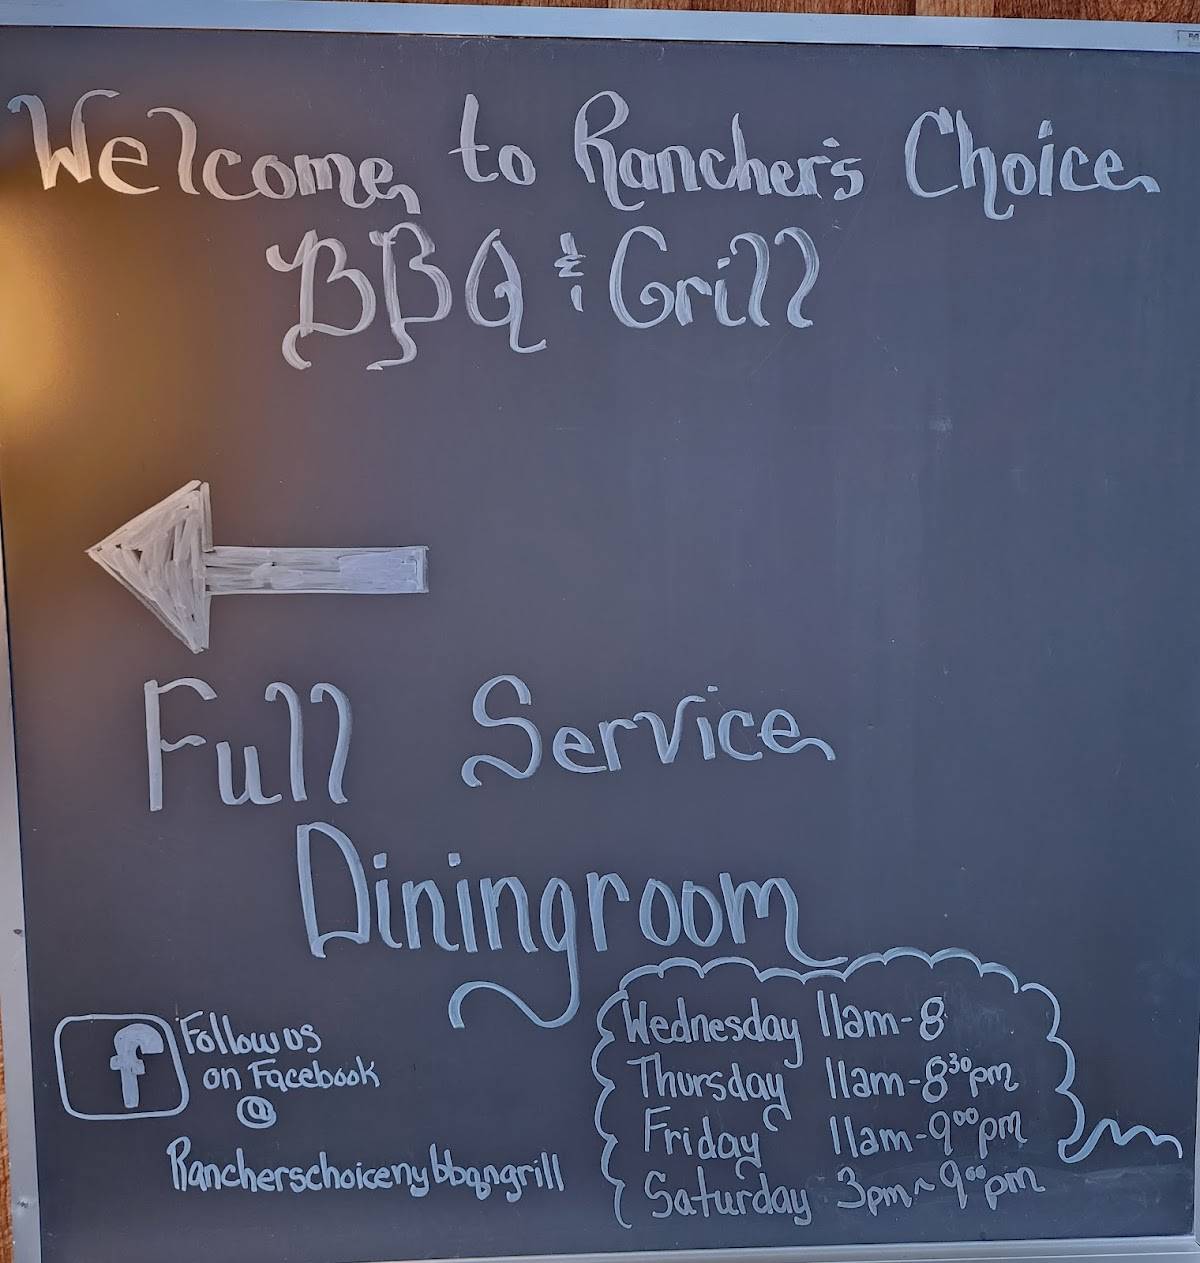 Welcome to Rancher's Choice
BBQ & Grill
Full Service
Diningroom
Follow us
on Facebook
@
Rancherschoicenybbqngrill
Wednesday 11am-8
Thursday 11am-8³⁰pm
Friday 11am-9⁰⁰pm
Saturday 3pm~9⁰⁰pm